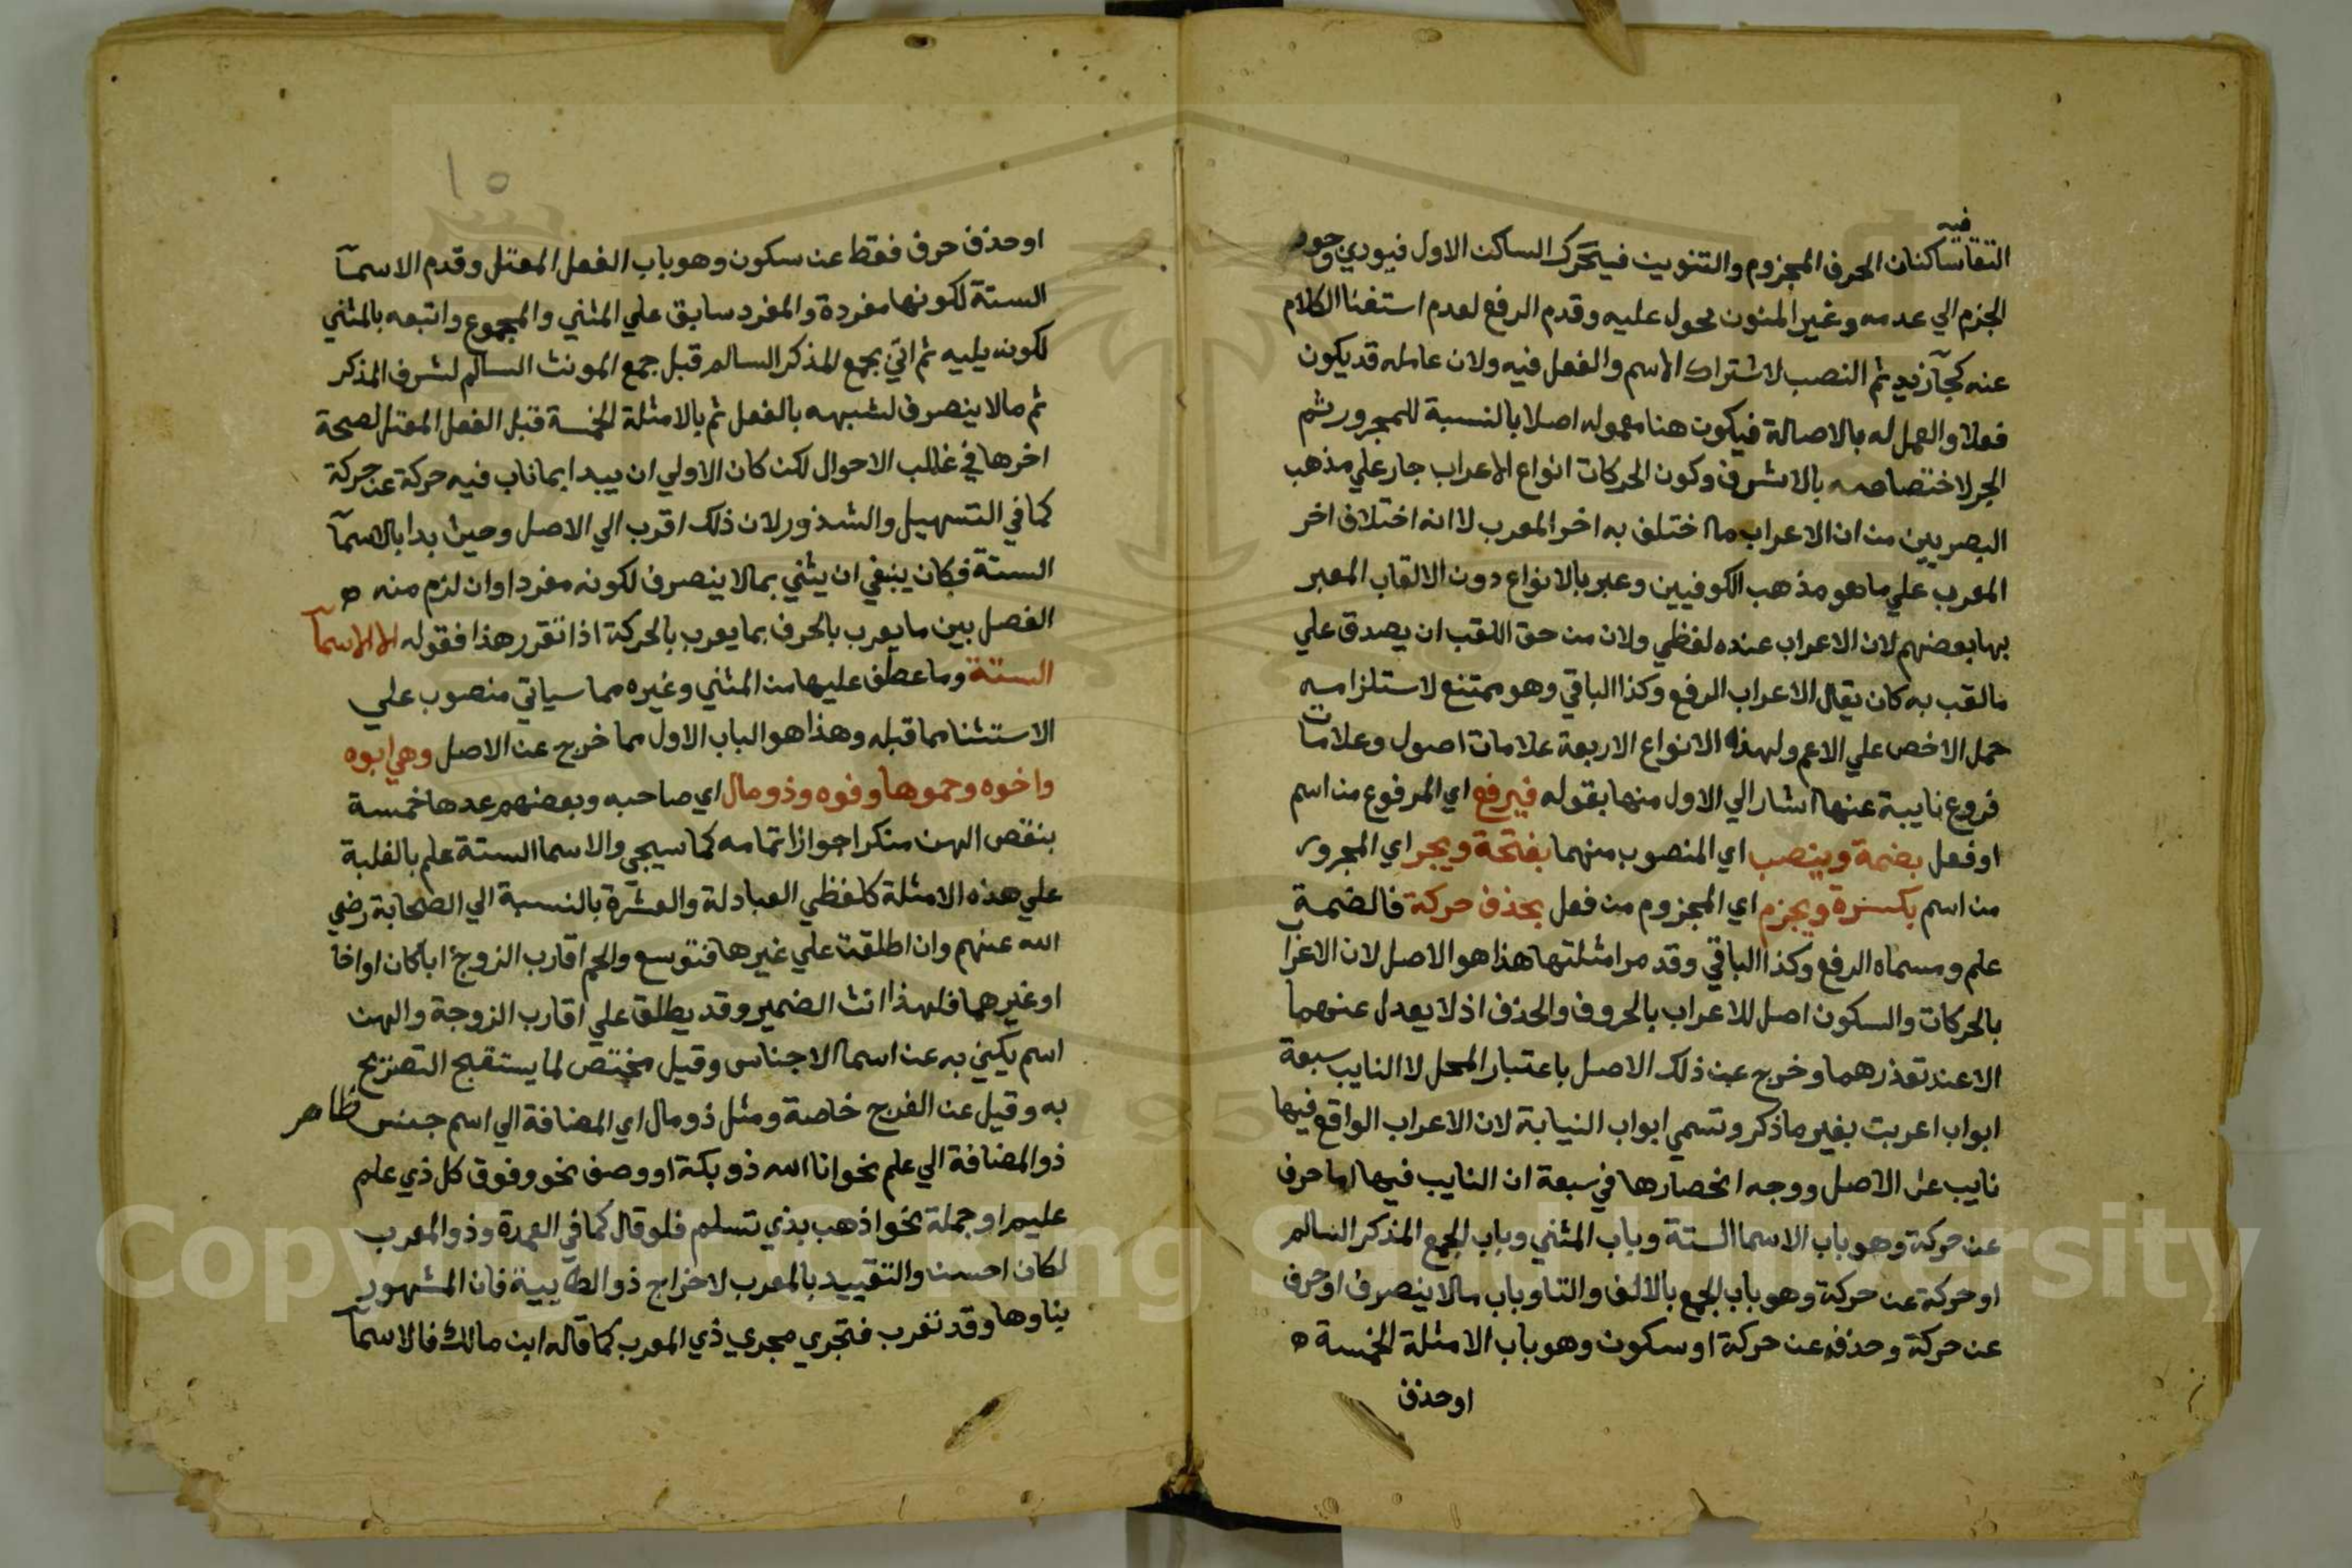 فيه
التقا ساكنان الحرف المجزوم والتنوين فيتحرك الساكن الاول فيودي وجود
الجزم الي عدمه وغير المنون محول عليه وقدم الرفع لعدم استغنا الكلام
عنه كجآ زيد ثم النصب لاشتراك الاسم والفعل فيه ولان عامله قد يكون
فعلا والعمل له بالاصالة فيكون هنا معموله اصلا بالنسبة للمجرور ثم
الجر لاختصاصه بالاشرف وكون الحركات انواع الاعراب جار علي مذهب
البصريين من ان الاعراب ما اختلف به اخر المعرب لا انه اختلاف اخر
المعرب علي ما هو مذهب الكوفيين وعبر بالانواع دون الالقاب المعبر
بها بعضهم لان الاعراب عنده لفظي ولان من حق اللقب ان يصدق علي
مالقب به كان يقال الاعراب الرفع وكذا الباقي وهو ممتنع لاستلزامه
حمل الاخص علي الاعم ولهذه الانواع الاربعة علامات اصول وعلامات
فروع نايبة عنها اشار الي الاول منها بقوله فيرفع اي المرفوع من اسم
او فعل بضمة وينصب اي المنصوب منهما بفتحة ويجر اي المجرور
من اسم بكسرة ويجزم اي المجزوم من فعل بحذف حركة فالضمة
علم ومسماه الرفع وكذا الباقي وقد مر امثلتها هذا هو الاصل لان الاعراب
بالحركات والسكون اصل للاعراب بالحروف والحذف اذ لا يعدل عنهما
الا عند تعذرهما وخرج عن ذلك الاصل باعتبار المحل لا النايب سبعة
ابواب اعربت بغير ما ذكر وتسمي ابواب النيابة لان الاعراب الواقع فيها
نايب عن الاصل ووجه انحصارها في سبعة ان النايب فيها اما حرف
عن حركة وهو باب الاسما الستة وباب المثني وباب الجمع المذكر السالم
او حركة عن حركة وهو باب الجمع بالالف والتا وباب مالا ينصرف او حرف
عن حركة وحذفه عن حركة او سكون وهو باب الامثلة الخمسة ه
او حذف
١٥
او حذف حرف فقط عن سكون وهو باب الفعل المعتل وقدم الاسمآ
الستة لكونها مفردة والمفرد سابق علي المثني والمجموع واتبعه بالمثني
لكونه يليه ثم اتي بجمع المذكر السالم قبل جمع المونث السالم لشرف المذكر
ثم مالا ينصرف لشبهه بالفعل ثم بالامثلة الخمسة قبل الفعل المعتل لصحة
اخرها في غالب الاحوال لكن كان الاولي ان يبدا بما ناب فيه حركة عن حركة
كما في التسهيل والشذور لان ذلك اقرب الي الاصل وحيث بدا بالاسمآ
الستة فكان ينبغي ان يثني بمالا ينصرف لكونه مفردا وان لزم منه ه
الفصل بين ما يعرب بالحرف بما يعرب بالحركة اذا تقرر هذا فقوله الا الاسمآ
الستة وما عطف عليها من المثني وغيره مما سياتي منصوب علي
الاستثنا مما قبله وهذا هو الباب الاول مما خرج عن الاصل وهي ابوه
واخوه وحموها وفوه وذو مال اي صاحبه وبعضهم عدها خمسة
بنقص الهن منكرا جواز اتمامه كما سيجي والاسما الستة علم بالغلبة
علي هذه الامثلة كلفظي العبادلة والعشرة بالنسبة الي الصحابة رضي
الله عنهم وان اطلقت علي غيرها فتوسع والحم اقارب الزوج ابا كان او اخا
او غيرهما فلهذا انث الضمير وقد يطلق علي اقارب الزوجة والهن
اسم يكني به عن اسما الاجناس وقيل مختص لما يستقبح التصريح
به وقيل عن الفرج خاصة ومثل ذو مال اي المضافة الي اسم جنس ظاهر
ذو المضافة الي علم نحو انا الله ذو بكة او وصف نحو وفوق كل ذي علم
عليم او جملة نحو اذهب بذي تسلم فلو قال كما في العمدة وذو المعرب
لكان احسن والتقييد بالمعرب لاخراج ذو الطايية فان المشهور
بناوها وقد تعرب فتجري مجري ذي المعرب كما قاله ابن مالك فالاسمآ
Copyright © King Saud University